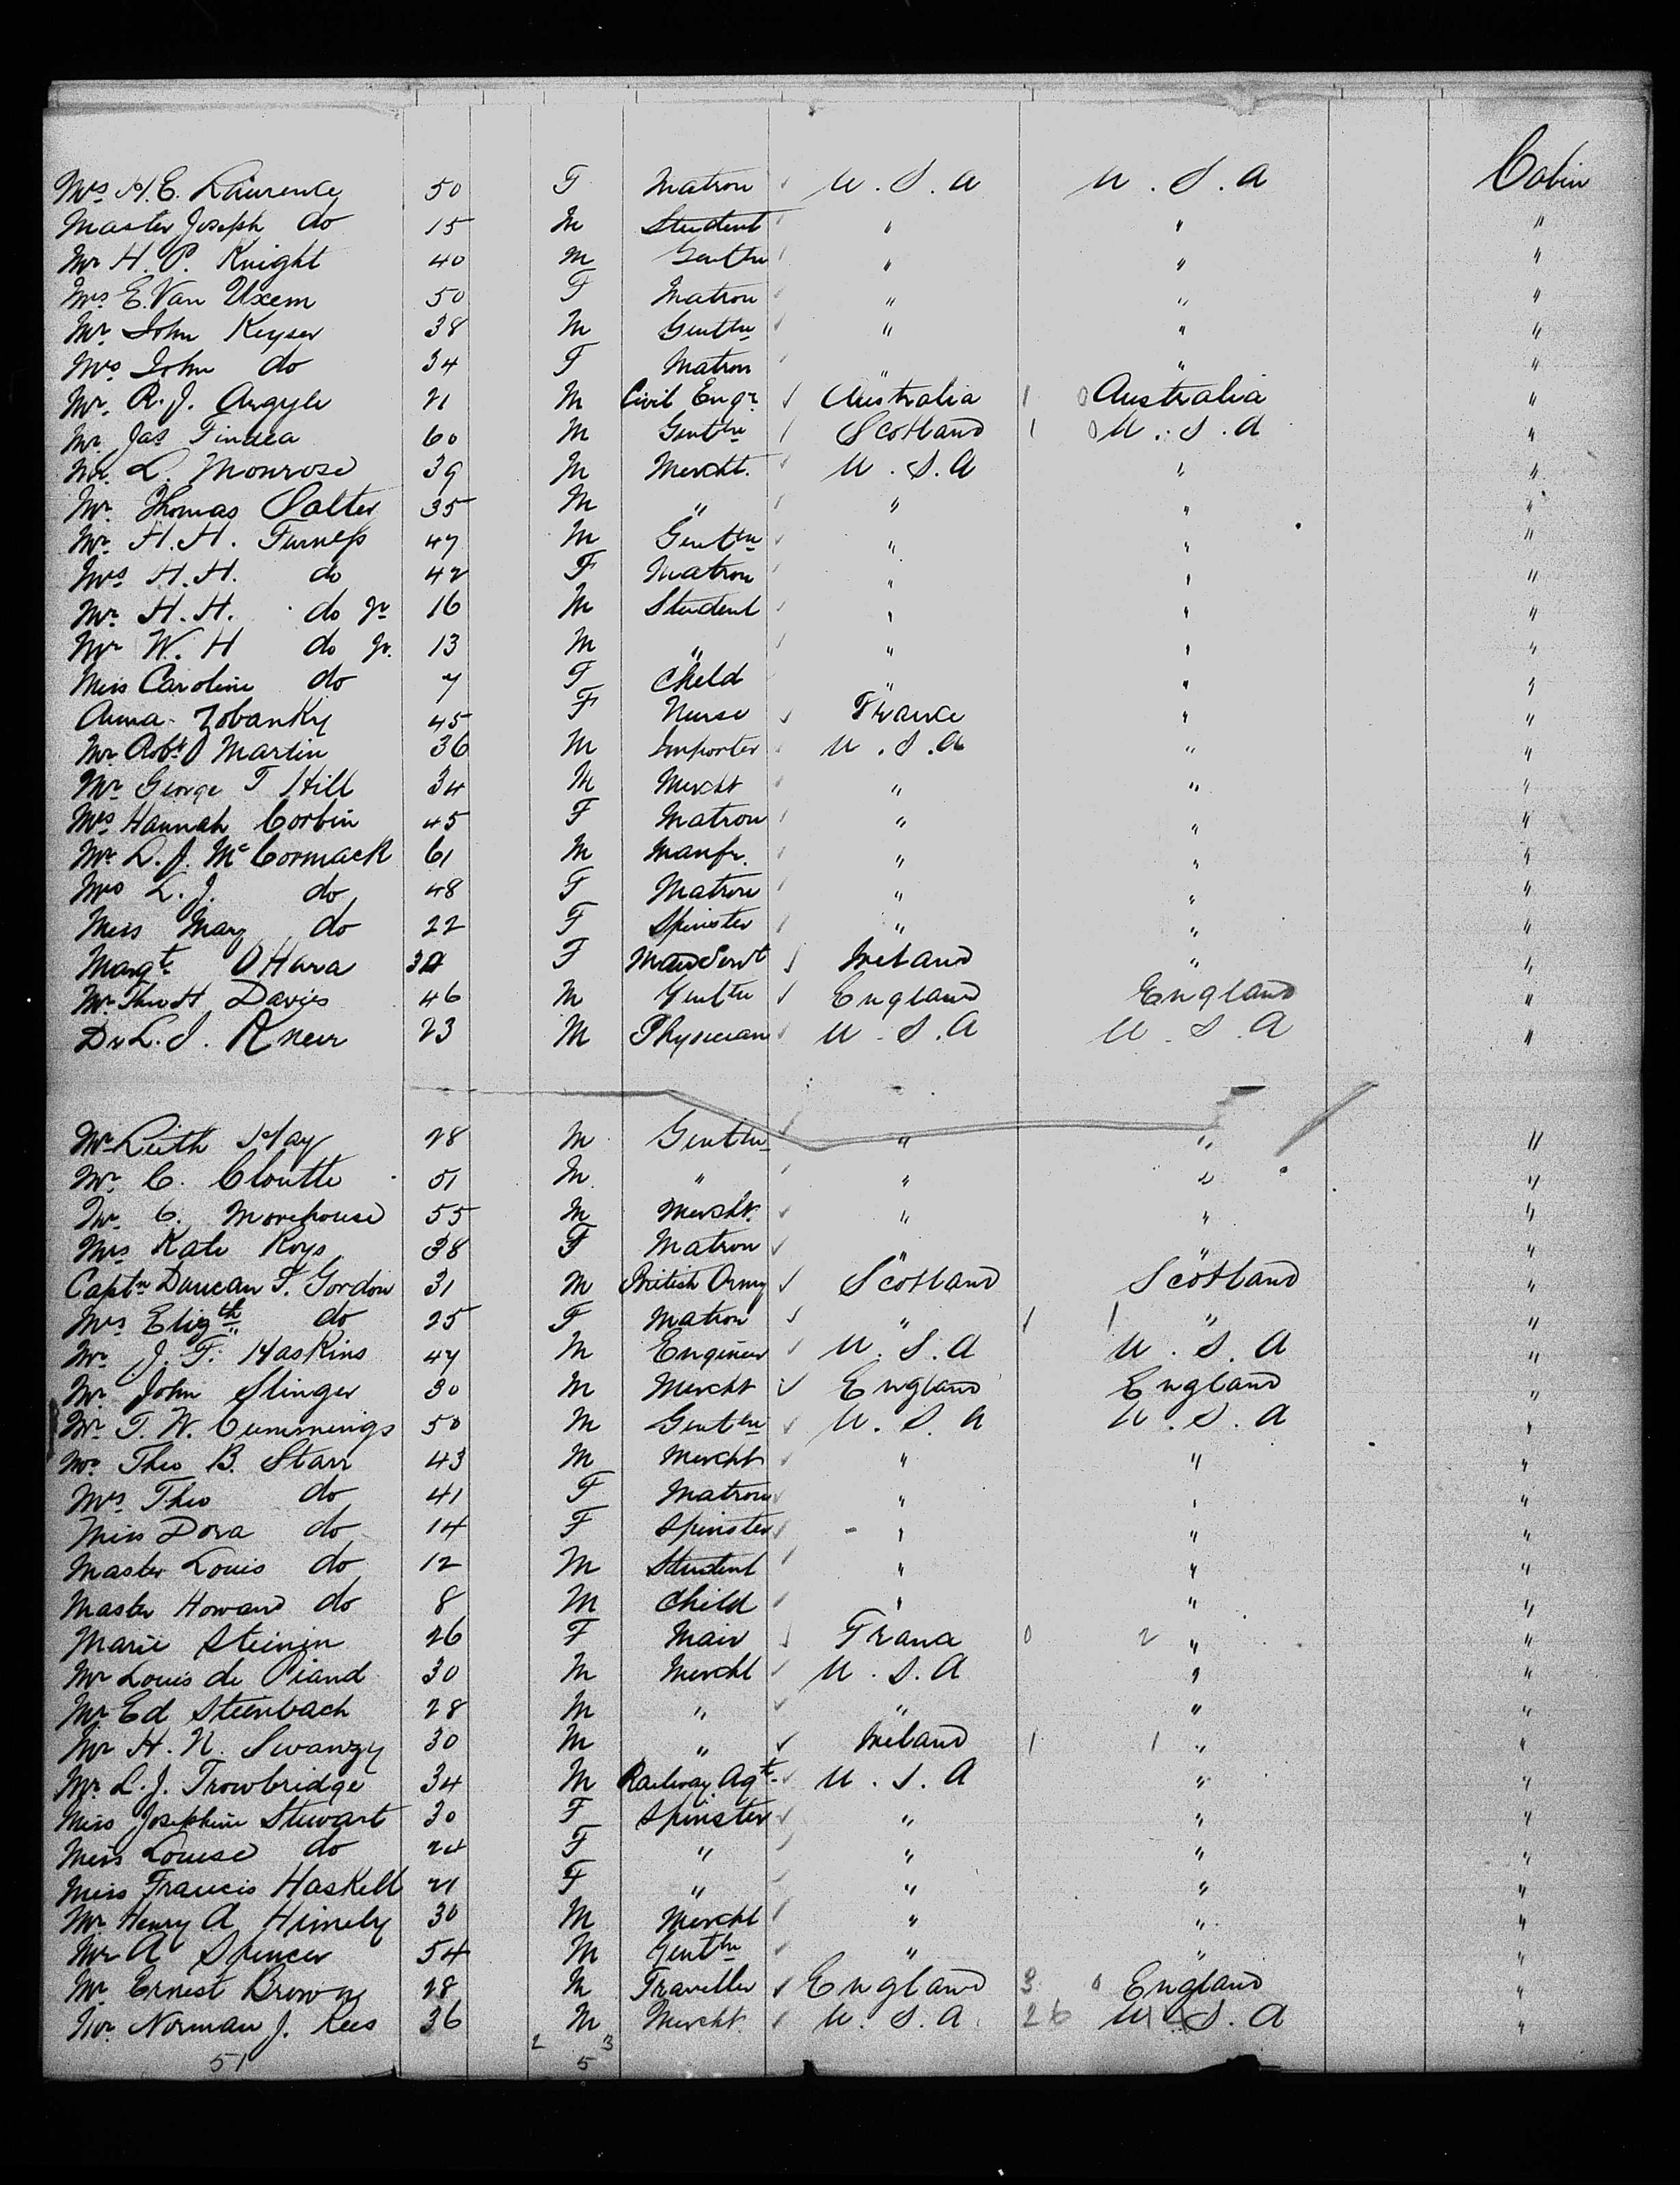 Cabin
Mrs H. E. Laurence 50 F Matron U. S. A U. S. A
Master Joseph do 15 M Student " " "
Mr H. P. Knight 40 M Gentln " " "
Mrs E. Van Uxem 50 F Matron " " "
Mr. John Keyser 38 M Gentln " " "
Mrs John do 34 F Matron " " "
Mr. R. J. Argyle 21 M Civil Engr. Australia 1 0 Australia "
Mr. Jas 60 M Gentln Scotland 1 0 U. S. A "
Mr. L. Monrose 39 M Mercht. U. S. A " "
Mr. Thomas Salter 35 M " " " "
Mr. H. H. Furness 47 M Gentln " " "
Mrs H. H. do 42 F Matron " " "
Mr. H. H. do Jr 16 M Student " " "
Mr W. H do Jr. 13 M " " " "
Miss Caroline do 7 F Child " " "
Anna Zobanky 45 F Nurse France " "
Mr. Robt O Martin 36 M Importer U. S. A " "
Mr George T Hill 34 M Mercht " " "
Mrs Hannah Corbin 45 F Matron " " "
Mr. L. J. McCormack 61 M Manfr. " " "
Mrs L. J. do 48 F Matron " " "
Miss Mary do 22 F Spinster " " "
Margt. O Hara F Servt Ireland " "
Mr. Davies 46 M Gentln England England "
Dr L. J. 23 M Physician U. S. A U. S. A "
Mr Leith Hay 28 M Gentln " " "
Mr. C. Cloutte 51 M " " " "
Mr. C. Morehouse 55 M Mercht. " " "
Mrs Kate Roys 38 F Matron " " "
Captn Duncan F. Gordon 31 M British Army Scotland Scotland "
Mrs Elizth do 25 F Matron " 1 1 " "
Mr. J. F. Haskins 47 M Engineer U. S. A U. S. A "
Mr. John Slinger 30 M Mercht England England "
Mr. T. W. Cummings 50 M Gentln U. S. A U. S. A "
Mr. Theo B. Starr 43 M Mercht " " "
Mrs Theo do 41 F Matron " " "
Miss Dora do 14 F Spinster " " "
Master Louis do 12 M Student " " "
Master Howard do 8 M Child " " "
Marie 26 F Maid France 0 2 " "
Mr Louis de 30 M Mercht U. S. A " "
Mr. Ed Steinbach 28 M " " " "
Mr H. N. Swanzy 30 M " Ireland 1 1 " "
Mr. L. J. Trowbridge 34 M Railway Agt. U. S. A " "
Miss Josephine Stewart 30 F Spinster " " "
Miss Louise do 24 F " " " "
Miss Francis Haskell 21 F " " " "
Mr Henry A Himely 30 M Mercht " " "
Mr A Spencer 54 M Gentln " " "
Mr. Ernest Brown 28 M Traveller England 3 0 England "
Mr. Norman J. Rees 36 M Mercht U. S. A. 26 U. S. A "
51 2 5 3